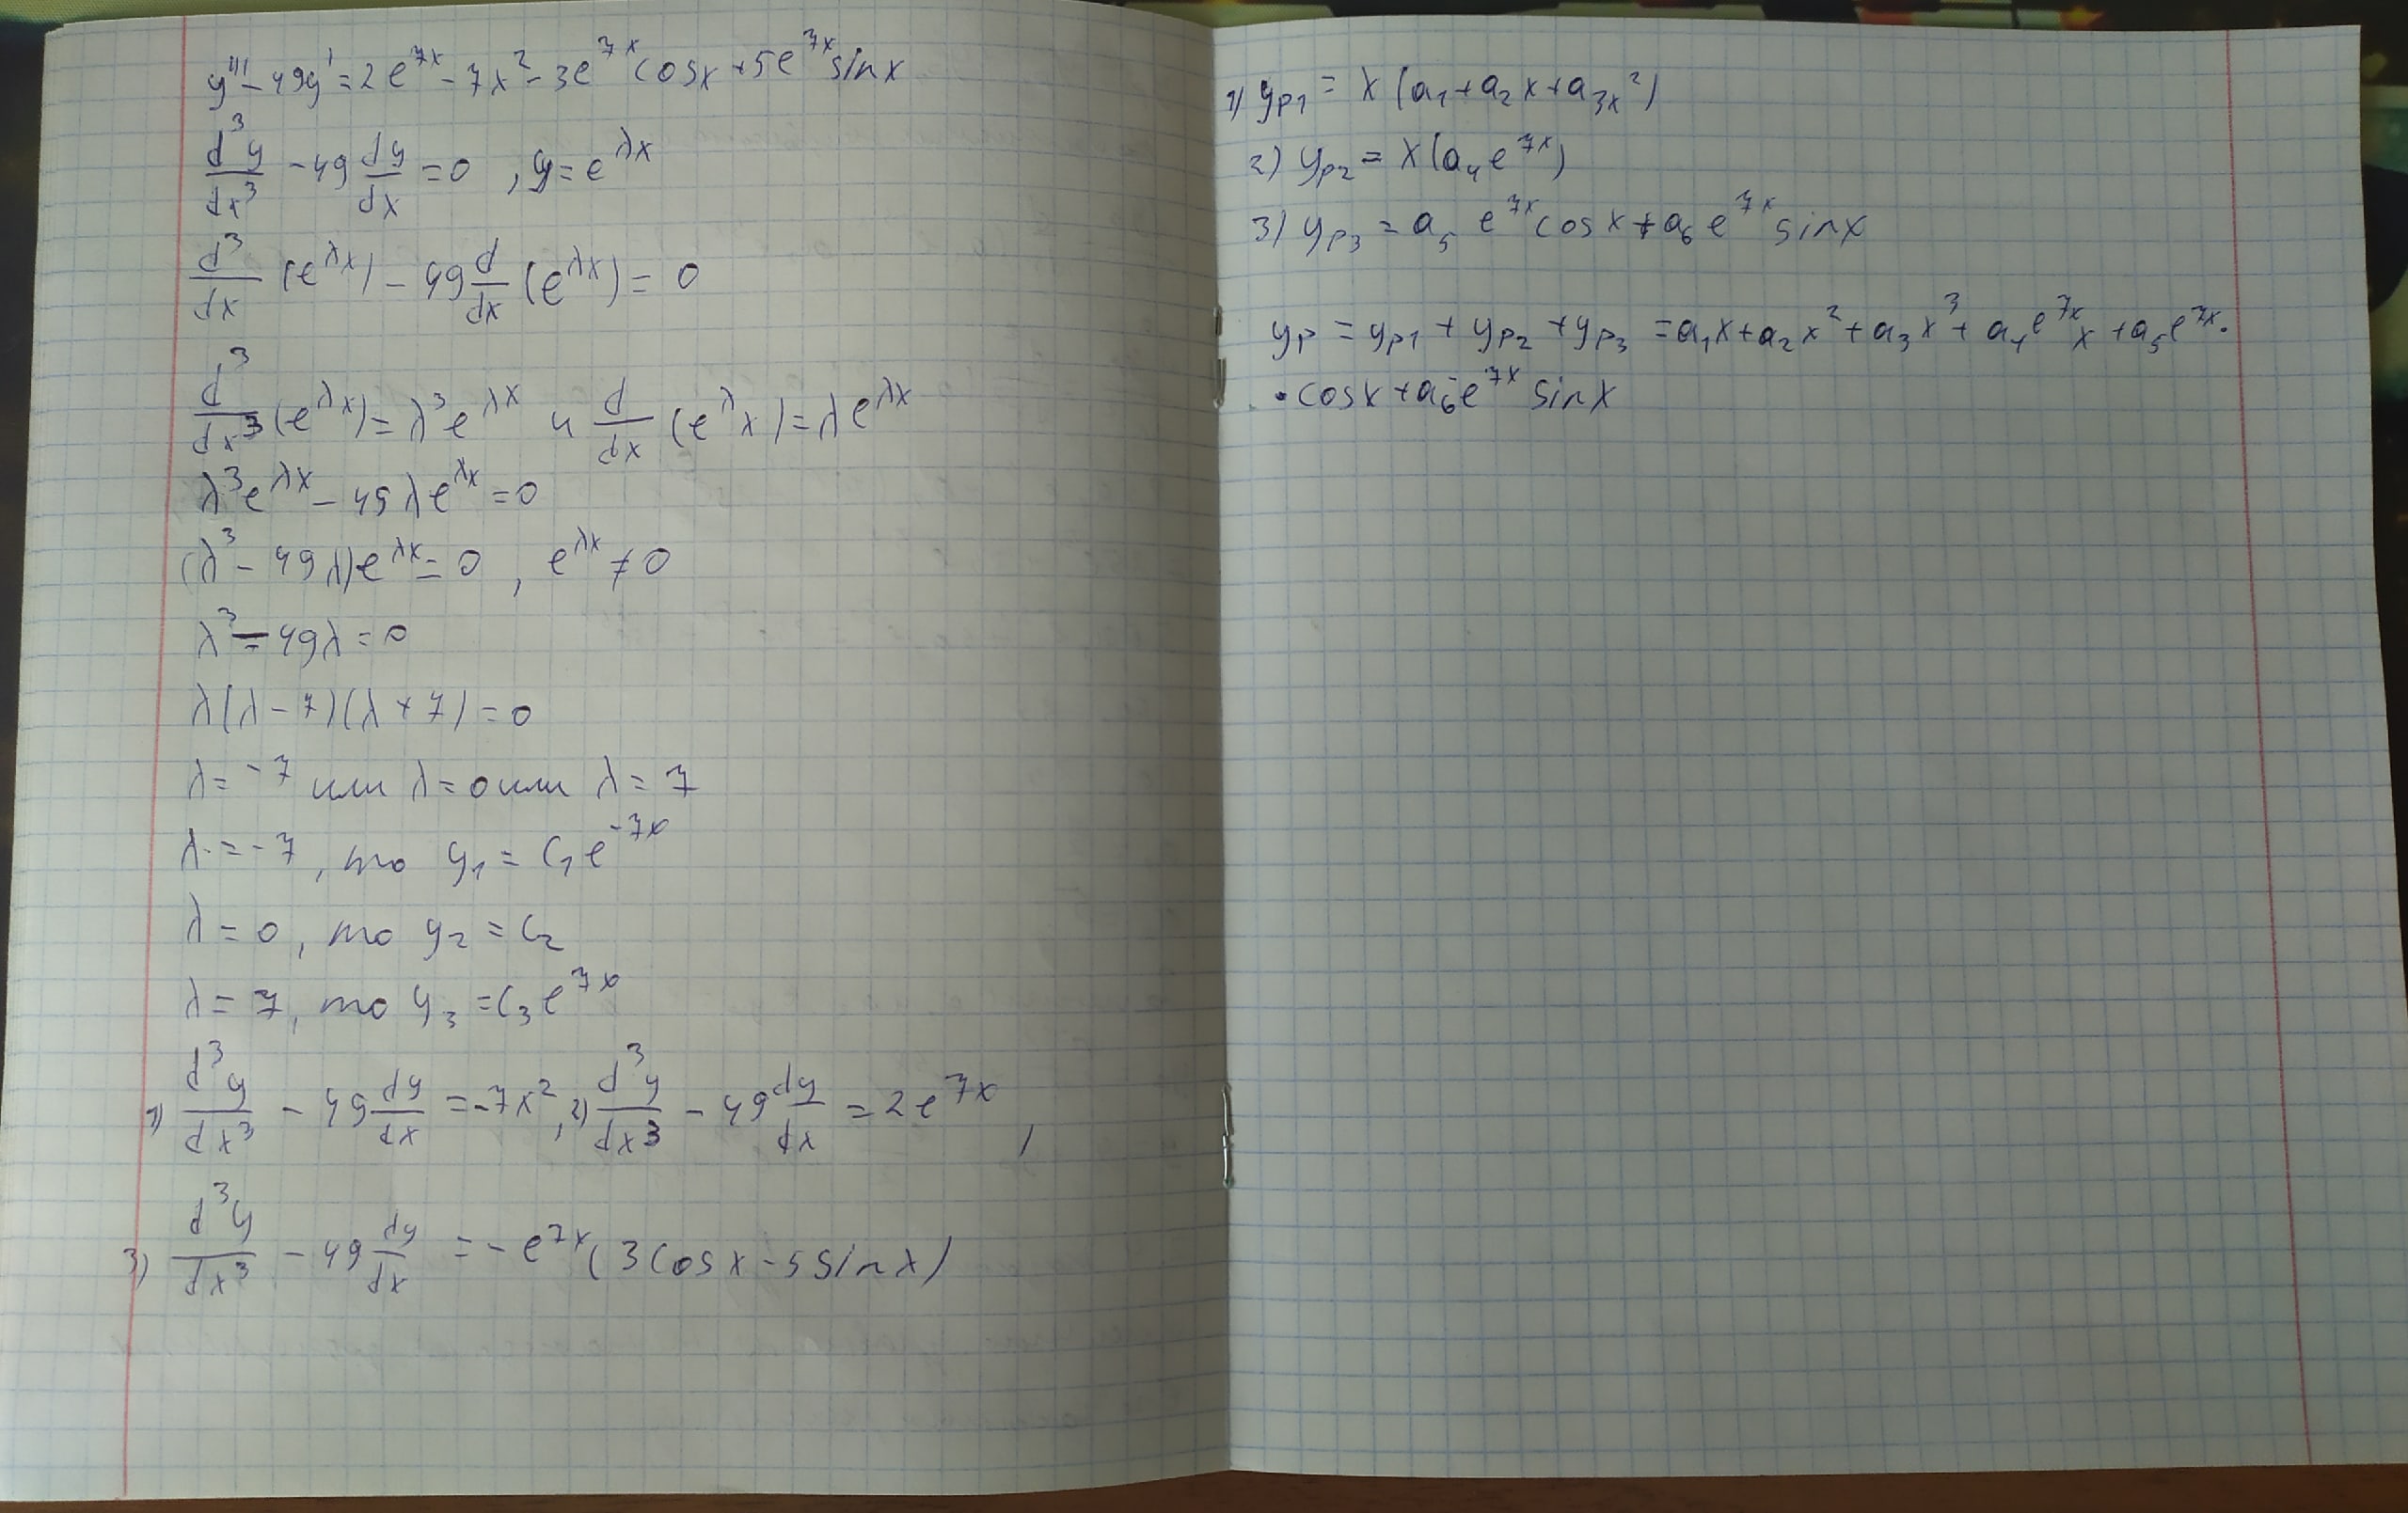 y''' - 49y' = 2e^{7x} - 7x^2 - 3e^{7x}cosx + 5e^{7x}sinx
\frac{d^3y}{dx^3} - 49\frac{dy}{dx} = 0 , y = e^{λx}
\frac{d^3}{dx}(e^{λx}) - 49\frac{d}{dx}(e^{λx}) = 0
\frac{d^3}{dx^3}(e^{λx}) = λ^3e^{λx} и \frac{d}{dx}(e^{λ}x) = λe^{λx}
λ^3e^{λx} - 49λe^{λx} = 0
(λ^3 - 49λ)e^{λx} = 0 , e^{λx} ≠ 0
λ^3 - 49λ = 0
λ(λ - 7)(λ + 7) = 0
λ = -7 или λ = 0 или λ = 7
λ = -7 , то y_1 = C_1e^{-7x}
λ = 0 , то y_2 = C_2
λ = 7 , то y_3 = C_3e^{7x}
1) \frac{d^3y}{dx^3} - 49\frac{dy}{dx} = -7x^2 , 2) \frac{d^3y}{dx^3} - 49\frac{dy}{dx} = 2e^{7x} ,
3) \frac{d^3y}{dx^3} - 49\frac{dy}{dx} = -e^{7x}(3cosx - 5sinx)
1) y_{p1} = x(a_1 + a_2x + a_{3x}^2)
2) y_{p2} = x(a_4e^{7x})
3) y_{p3} = a_5 e^{7x}cosx + a_6e^{7x}sinx
y_p = y_{p1} + y_{p2} + y_{p3} = a_1x + a_2x^2 + a_3x^3 + a_4e^{7x}x + a_5e^{7x} ·
· cosx + a_6e^{7x} sinx